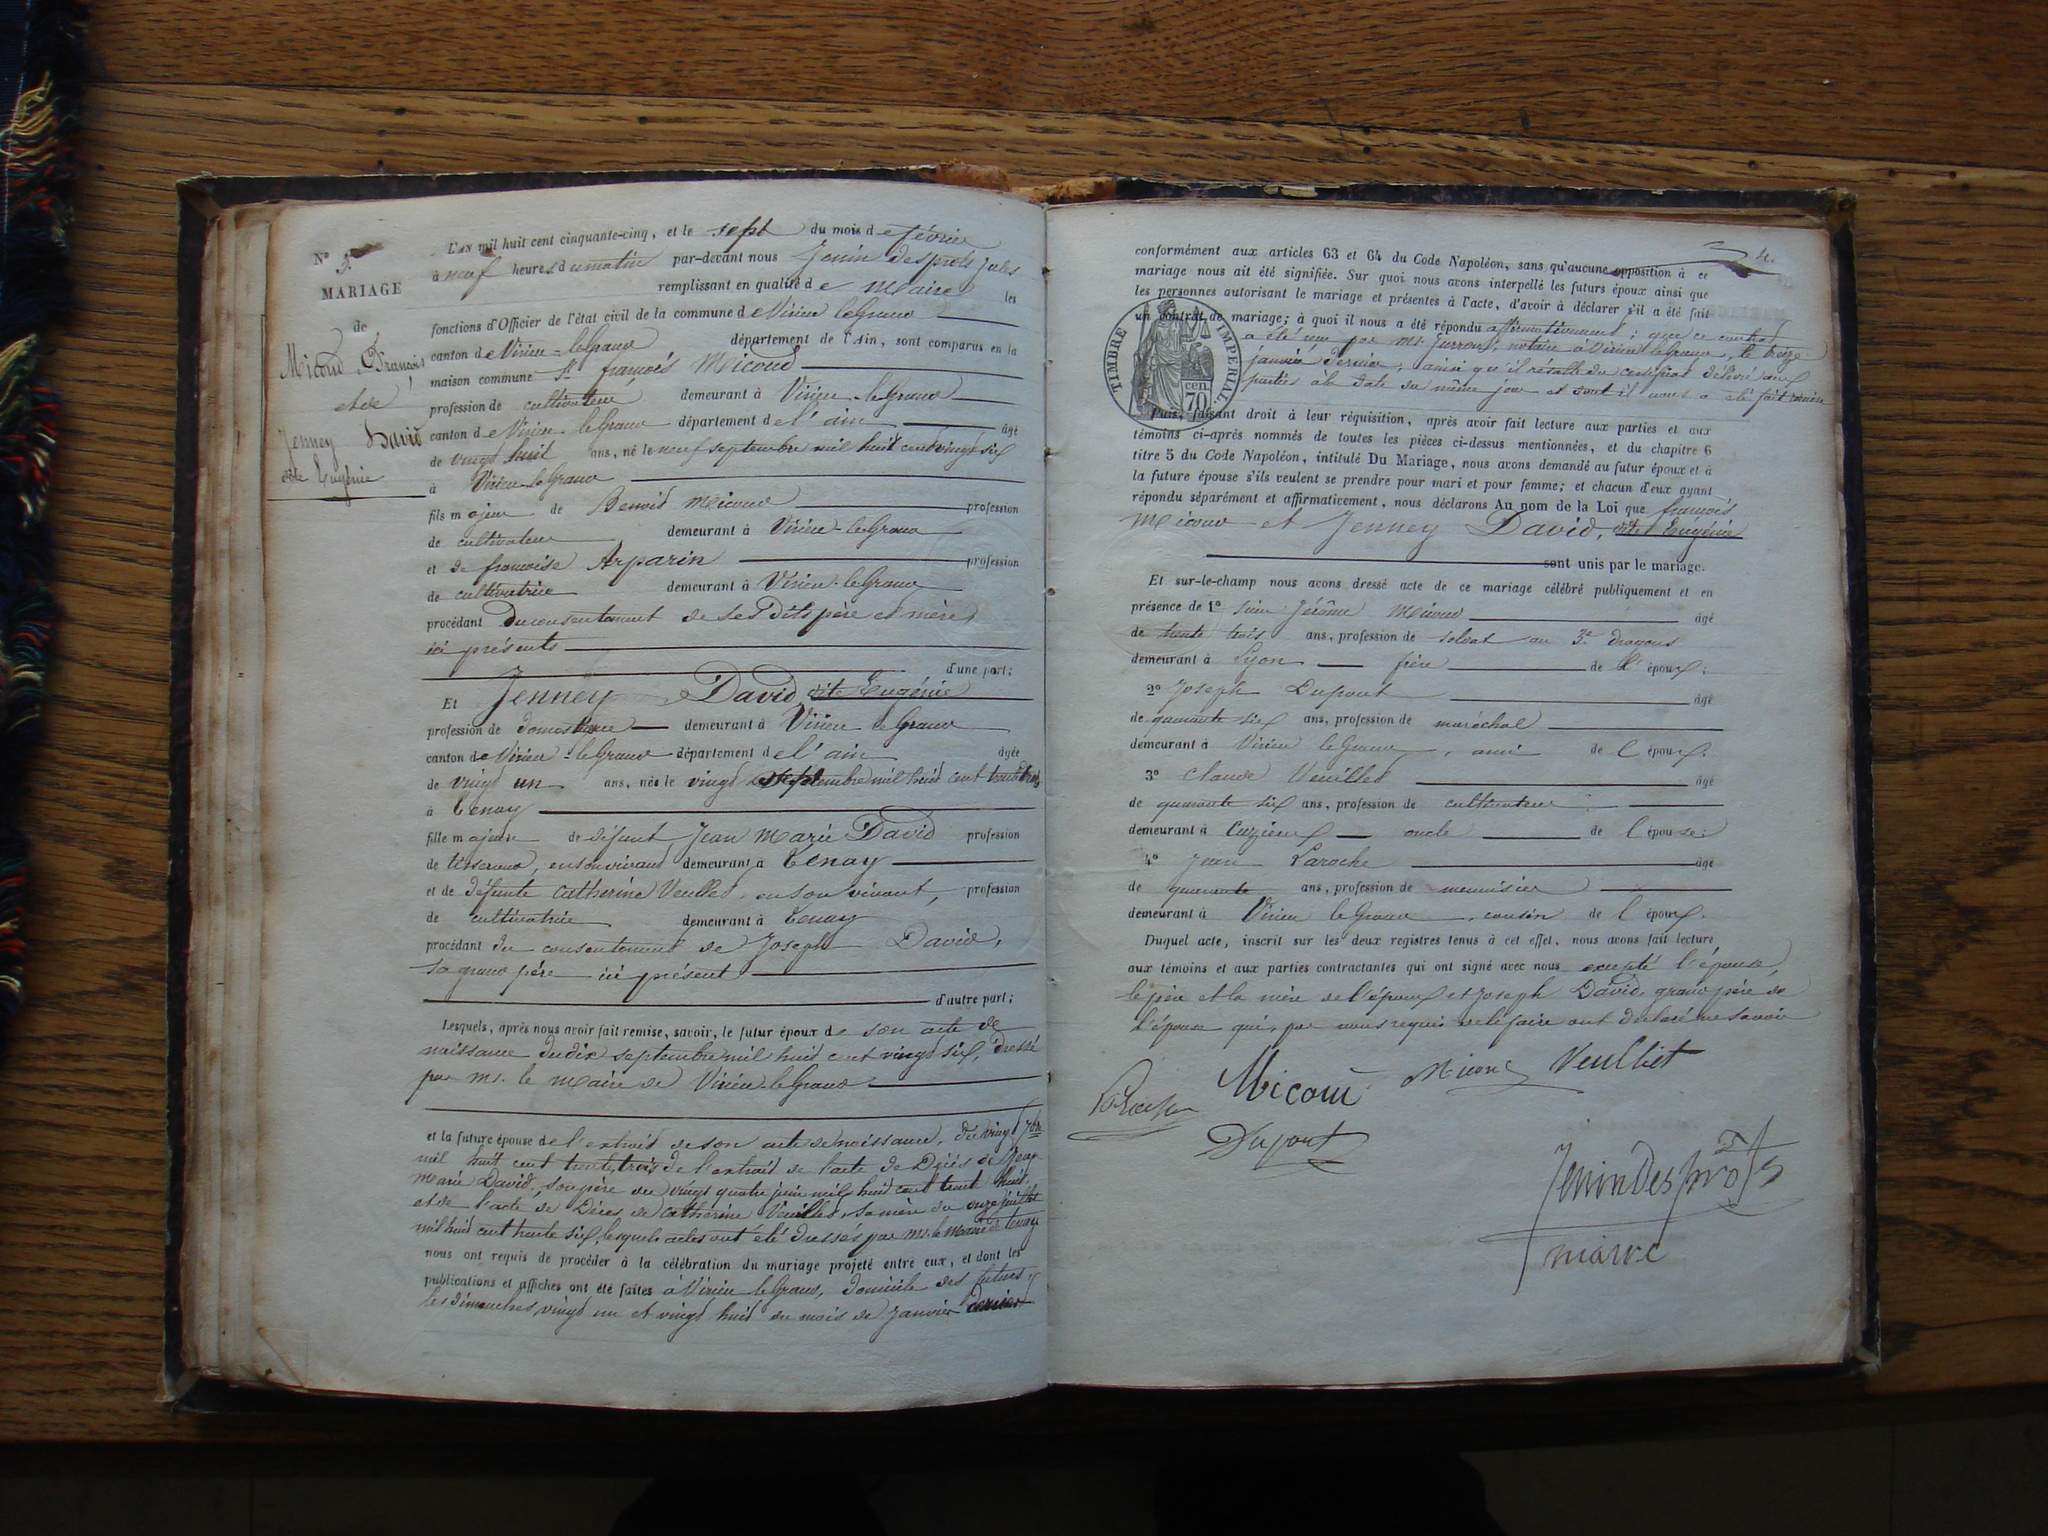 N° 3.
MARIAGE
de
Micoud François
et de
Jenney David
dite Eugénie
L'AN mil huit cent cinquante-cinq, et le sept du mois de février
à neuf heures du matin par-devant nous Jenin Desprots Jules
remplissant en qualité de Maire les
fonctions d'Officier de l'état civil de la commune de Virieu le Grand
canton de Virieu-le Grand département de l'Ain, sont comparus en la
maison commune Sr françois Micoud
profession de cultivateur, demeurant à Virieu-le Grand
canton de Virieu-le Grand département de l'ain âgé
de vingt huit ans, né le neuf septembre mil huit cent vingt six
à Virieu-le Grand
fils majeur de Benoit Micoud profession
de cultivateur demeurant à Virieu-le Grand
et de françoise Arparin profession
de cultivatrice demeurant à Virieu-le Grand
procédant du consentement de ses dits père et mère
ici présents
d'une part;
Et Jenney David, dite Eugénie
profession de domestique demeurant à Virieu le Grand
canton de Virieu-le Grand département de l'ain âgée
de vingt un ans, née le vingt septembre mil huit cent trente trois
à Tenay
fille majeure de défunt Jean Marie David profession
de tisserand, en son vivant demeurant à Tenay
et de défunte Catherine Veuillet, en son vivant, profession
de cultivatrice demeurant à Tenay
procédant du consentement de Joseph David,
sa grand père ici présent
d'autre part;
Lesquels, après nous avoir fait remise, savoir, le futur époux de son acte de
naissance du dix septembre mil huit cent vingt six, dressé
par Mr. le Maire de Virieu-le Grand
et la future épouse de l'extrait de son acte de naissance, du vingt 7bre
mil huit cent trente trois de l'extrait de l'acte de Décès de Jean
Marie David, son père du vingt quatre juin mil huit cent trent huit,
et de l'acte de Décès de Catherine Veuillet, sa mère du onze juillet
mil huit cent trente six, lesquels actes ont été dressés par Mr. le Maire de Tenay
nous ont requis de procéder à la célébration du mariage projeté entre eux, et dont les
publications et affiches ont été faites à Virieu le Grand, domicile des futurs
les dimanches, vingt un et vingt huit du mois de Janvier dernier
4.
conformément aux articles 63 et 64 du Code Napoléon, sans qu'aucune opposition à ce
mariage nous ait été signifiée. Sur quoi nous avons interpellé les futurs époux ainsi que
les personnes autorisant le mariage et présentes à l'acte, d'avoir à déclarer s'il a été fait
un contrat de mariage; à quoi il nous a été répondu affirmativement; que ce contrat
a été reçu par Mr. notaire à Virieu le Grand, le treize
janvier dernier, ainsi qu'il résulte du certificat délivré aux
parties à la date du même jour et dont il nous a été fait remise
TIMBRE IMPERIAL
70 cen.
Puis, faisant droit à leur réquisition, après avoir fait lecture aux parties et aux
témoins ci-après nommés de toutes les pièces ci-dessus mentionnées, et du chapitre 6
titre 5 du Code Napoléon, intitulé Du Mariage, nous avons demandé au futur époux et à
la future épouse s'ils veulent se prendre pour mari et pour femme; et chacun d'eux ayant
répondu séparément et affirmaticement, nous déclarons Au nom de la Loi que françois
Micoud et Jenney David, dite Eugénie
sont unis par le mariage.
Et sur-le-champ nous avons dressé acte de ce mariage célébré publiquement et en
présence de 1° Jérôme Micoud âgé
de trente trois ans, profession de soldat au 3e dragons
demeurant à Lyon frère de l'époux;
2° Joseph Dupont âgé
de quarante six ans, profession de maréchal
demeurant à Virieu le Grand, ami de l'époux.
3° Claude Veuillet âgé
de quarante six ans, profession de cultivateur
demeurant à Cuzieux oncle de l'épouse;
4° Jean Laroche âgé
de quarante ans, profession de menuisier
demeurant à Virieu le Grand, cousin de l'époux.
Duquel acte, inscrit sur les deux registres tenus à cet effet, nous avons fait lecture
aux témoins et aux parties contractantes qui ont signé avec nous excepté l'épouse,
le père et la mère de l'époux et Joseph David, grand père de
l'épouse qui, par nous requis de le faire ont déclaré ne savoir
Laroche Micoud Micoud Veulliet
Dupont
Jenin Desprots
maire